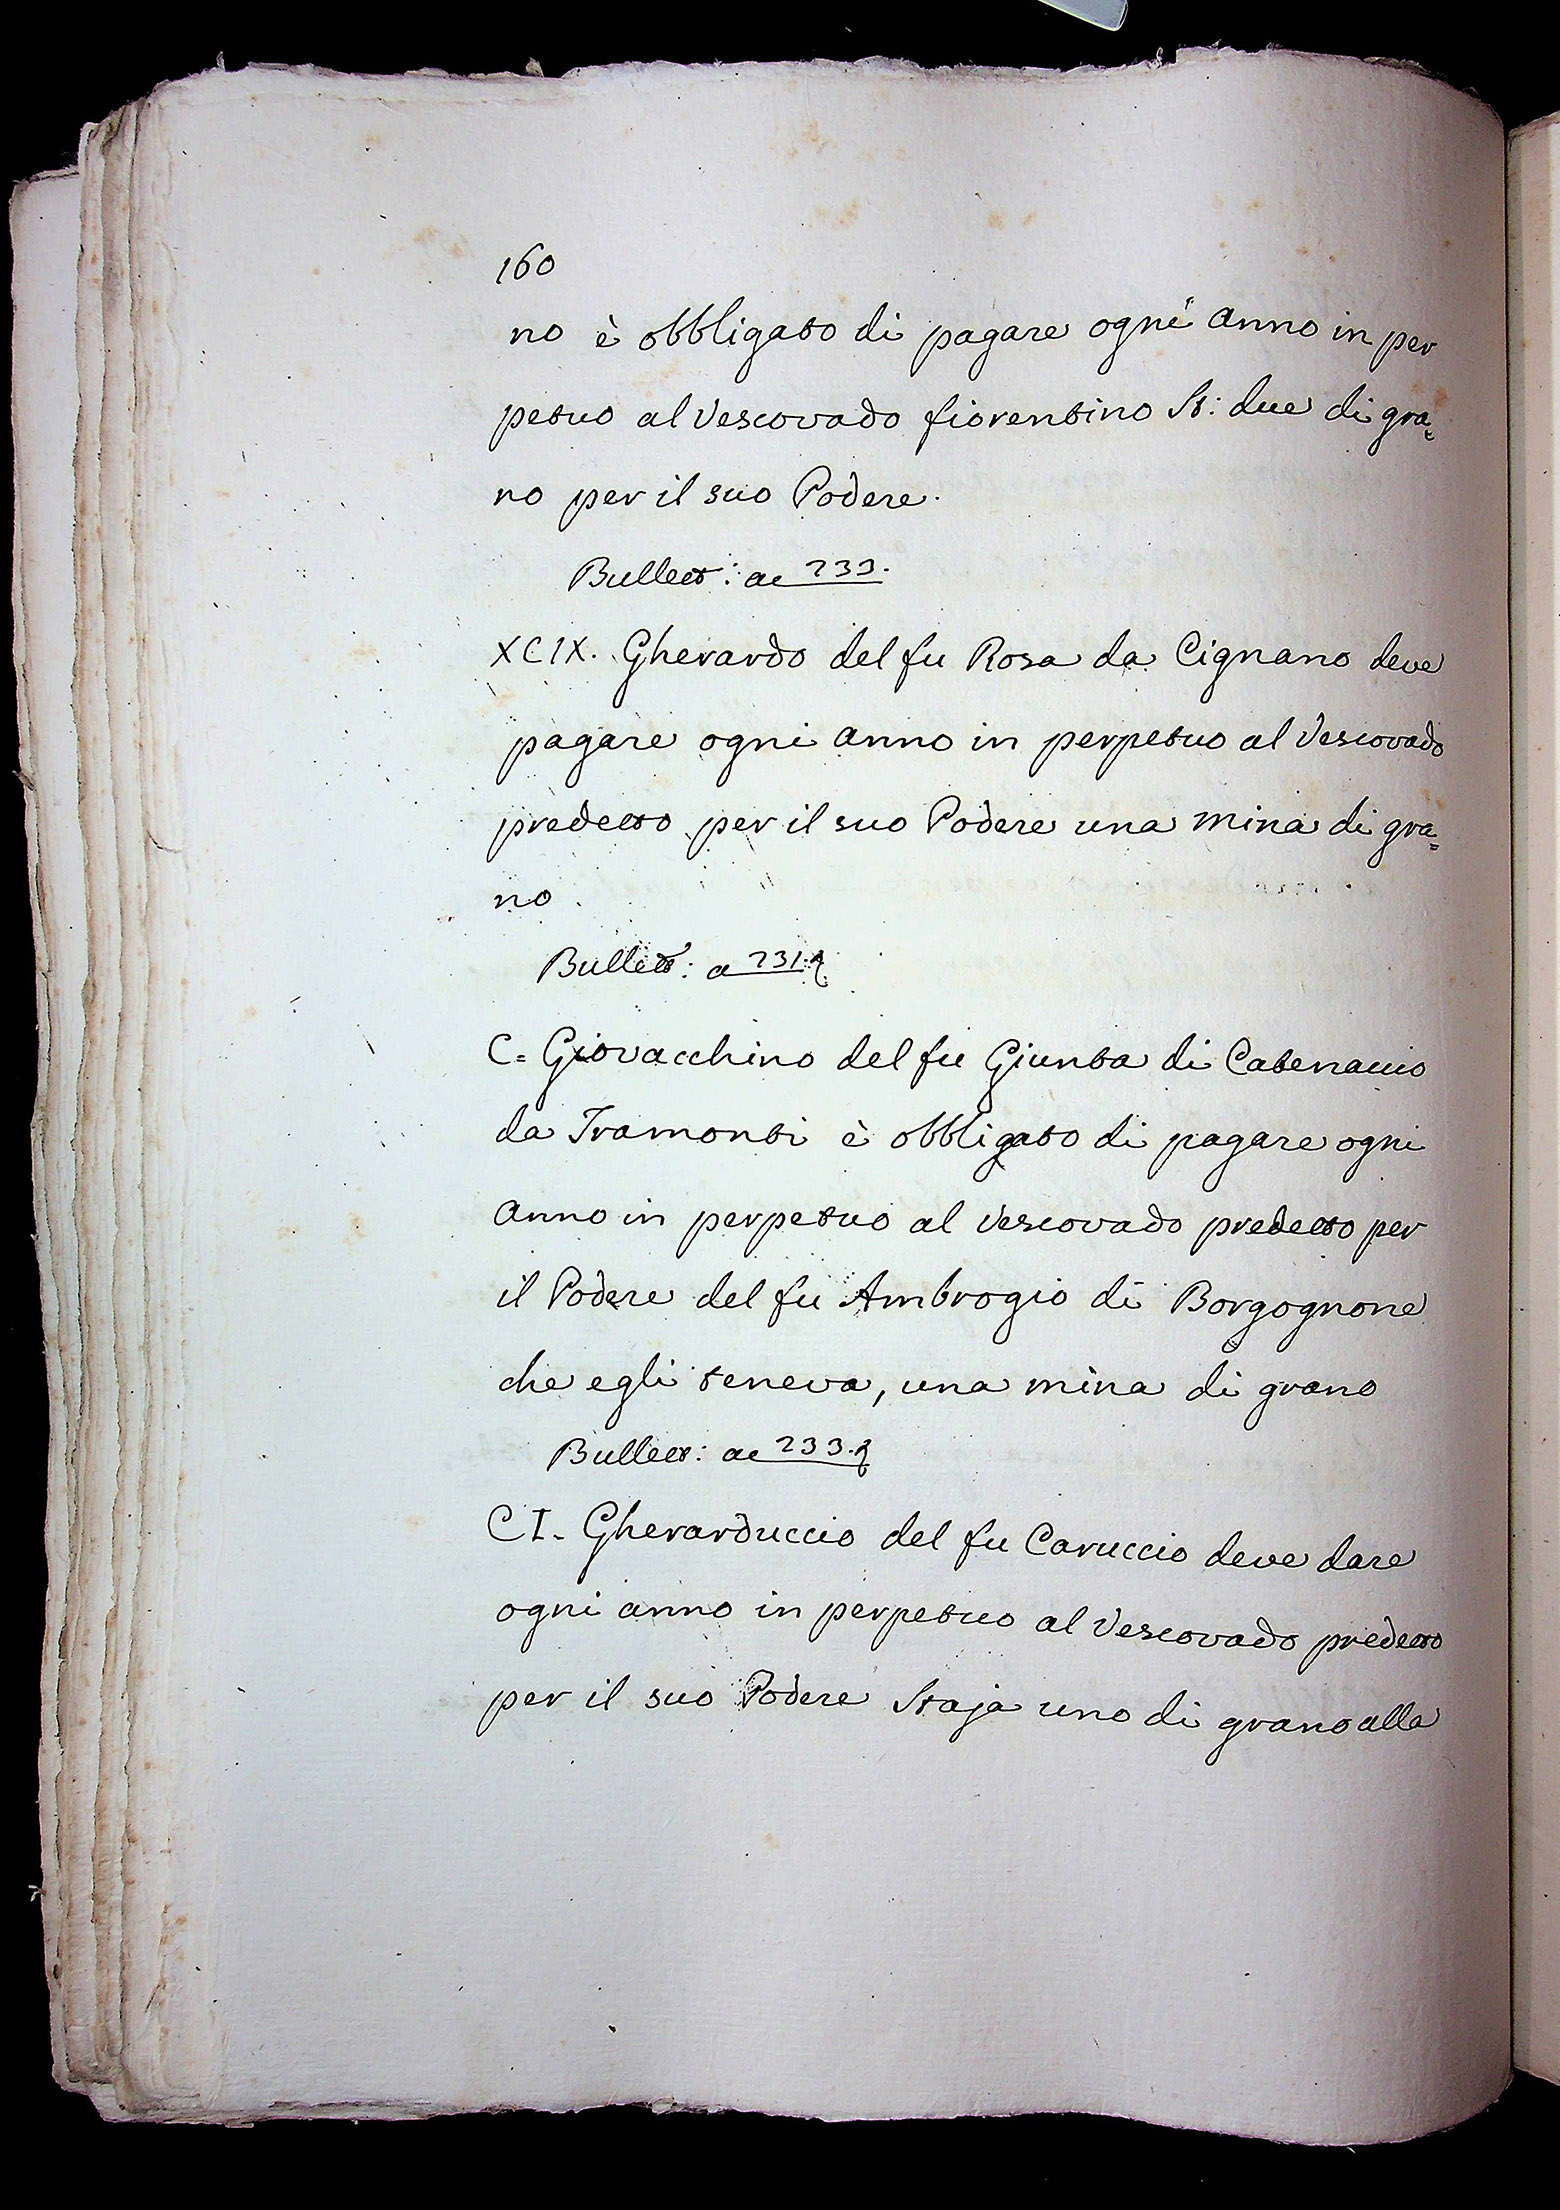 160
no è obbligato di pagare ogni anno in per
petuo al Vescovado fiorentino St: due di gra=
no per il suo Podere.
Bullett: ac 233.
XCIX. Gherardo del fu Rosa da Cignano deve
pagare ogni anno in perpetuo al Vescovado
predetto per il suo Podere una mina di gra=
no
Bullett: a 231.
C= Giovacchino del fu Giunta di Catenaccio
da Tramonti è obbligato di pagare ogni
anno in perpetuo al Vescovado predetto per
il Podere del fu Ambrogio di Borgognone
che egli teneva, una mina di grano
Bullett: ac 233.
CI. Gherarduccio del fu Caruccio deve dare
ogni anno in perpetuo al Vescovado predetto
per il suo Podere Staja uno di grano alla